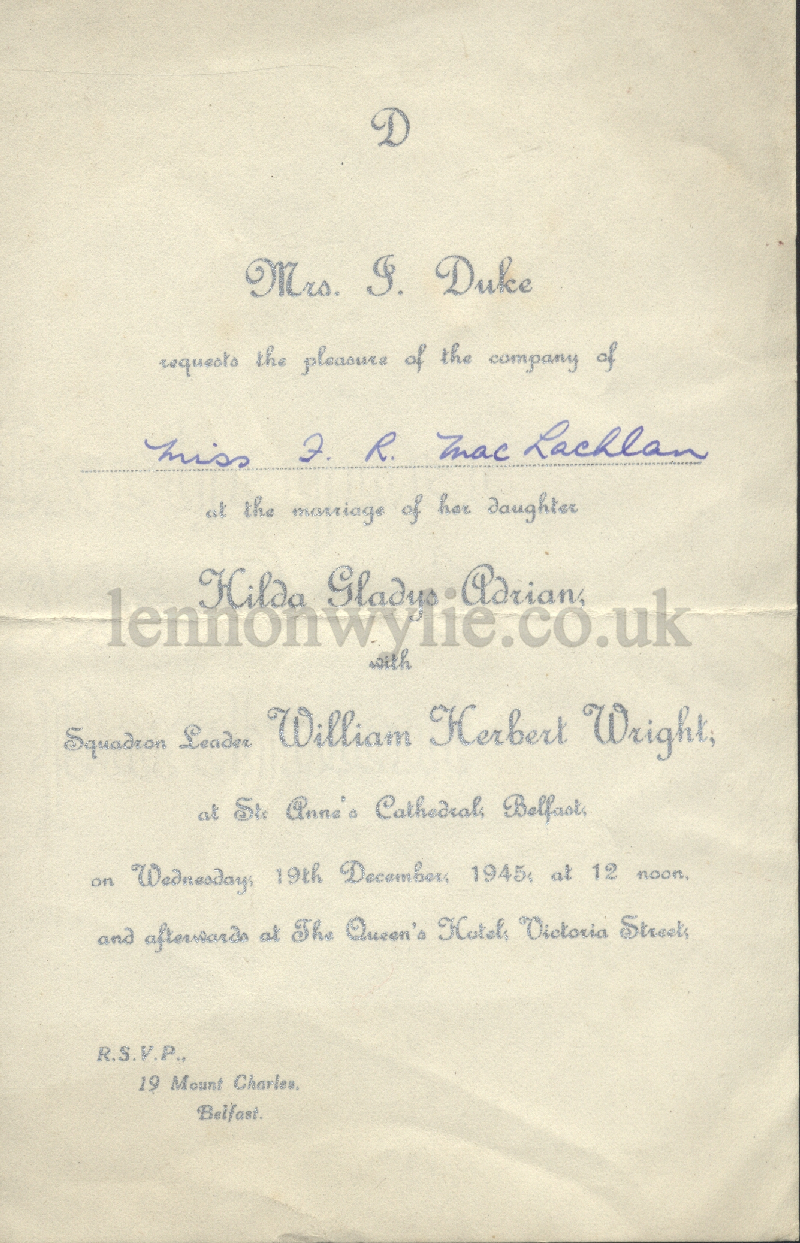 D
Mrs. I. Duke
requests the pleasure of the company of
Miss F. R. MacLachlan
at the marriage of her daughter
Hilda Gladys Adrian,
lennonwylie.co.uk
with
Squadron Leader William Herbert Wright,
at St. Anne's Cathedral, Belfast,
on Wednesday, 19th December, 1945, at 12 noon,
and afterwards at The Queen's Hotel, Victoria Street,
R.S.V.P.,
19 Mount Charles,
Belfast.